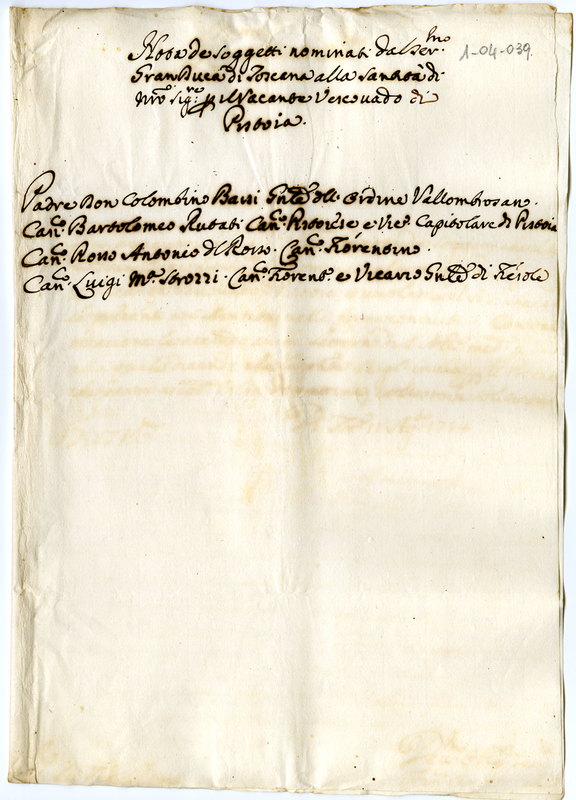 Nota de soggetti nominati dal Ser.mo
1-04-039.
Gran Duca di Toscana alla Santità di
Nro Sig.re p il Vacante Vescovado di
Pistoia.
Padre Don Colombino Bassi Gnle dell Ordine Vallombrosan.
Can.co Bartolomeo Rutati Can.co Pistoiese e Vic.o Capitolare di Pistoia
Can.co Rosso Antonio del Rosso. Can.co Fiorentino.
Can.co Luigi M.a Strozzi. Can.co Fiorent.o e Vicario Gnle di Fiesole